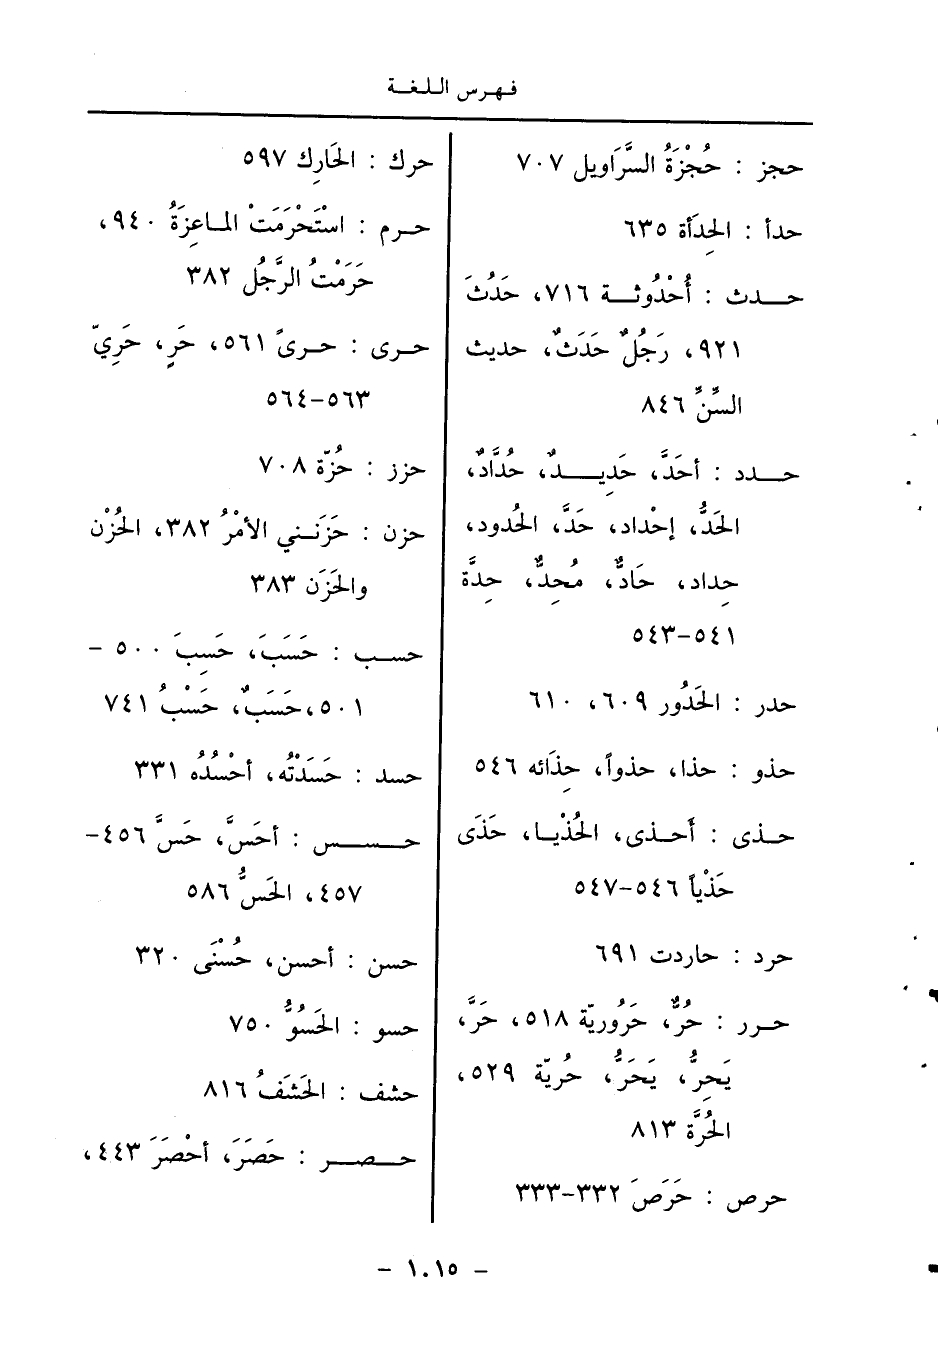 فهرس اللغة
حجز : حُجْزَةُ السَّرَاويل ٧٠٧
حدأ : الحِدَأة ٦٣٥
حدث : أُحْدُوثة ٧١٦، حَدُثَ
٩٢١، رَجُلٌ حَدَثٌ، حديث
السِّنِّ ٨٤٦
حدد : أحَدَّ، حَدِيدٌ، حُدَّادٌ،
الحَدُّ، إحْداد، حَدَّ، الحُدود،
حِداد، حَادٌّ، مُحِدٌّ، حِدَّة
٥٤١-٥٤٣
حدر : الحَدُور ٦٠٩، ٦١٠
حذو : حذا، حذواً، حِذَائه ٥٤٦
حذى : أَحذى، الحُذْيا، حَذَى
حَذْياً ٥٤٦-٥٤٧
حرد : حاردت ٦٩١
حرر : حُرٌّ، حَرُوريّة ٥١٨، حَرَّ،
يَحِرُّ، يَحَرُّ، حُريّة ٥٢٩،
الحُرَّة ٨١٣
حرص : حَرَصَ ٣٣٢-٣٣٣
حرك : الحَارِك ٥٩٧
حرم : اسْتَحْرَمَتْ الماعِزَةُ ٩٤٠،
حَرَمْتُ الرَّجُل ٣٨٢
حرى : حرىً ٥٦١، حَرٍ، حَرِيّ
٥٦٣-٥٦٤
حزز : حُزّة ٧٠٨
حزن : حَزَنَني الأمْرُ ٣٨٢، الحُزْن
والحَزَن ٣٨٣
حسب : حَسَبَ، حَسِبَ ٥٠٠ -
٥٠١، حَسَبٌ، حَسْبُ ٧٤١
حسد : حَسَدْتُه، أحْسُدُه ٣٣١
حسس : أحَسَّ، حَسَّ ٤٥٦-
٤٥٧، الحَسُّ ٥٨٦
حسن : أحسن، حُسْنَى ٣٢٠
حسو : الحَسُوُّ ٧٥٠
حشف : الحَشَفُ ٨١٦
حصر : حَصَرَ، أحْصَرَ ٤٤٣،
- ١٠١٥ -